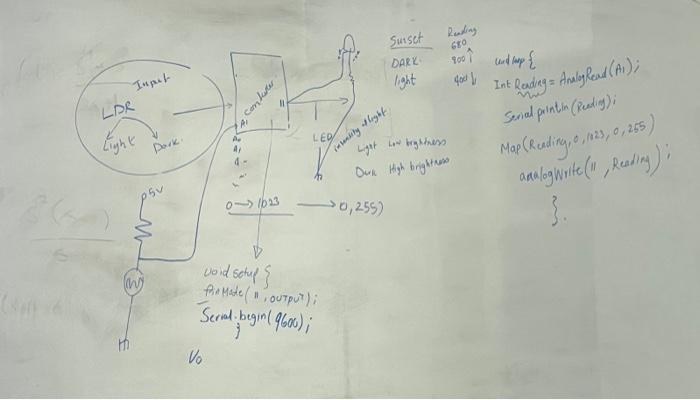 Input
LDR
Light
Dark
controller
A1
11
A0
A1
LED
intensity of light
Light Low brightness
Dark High brightness
0→1023 →0,255)
5V
void setup {
PinMode(11, OUTPUT);
Serial.begin(9600);
}
Vo
Sunset Reading
680
DARK 800↑
light 400↓
void loop {
Int Reading = AnalogRead(A1);
Serial println (Reading);
Map(Reading, 0, 1023, 0, 255)
analogWrite(11, Reading);
}.